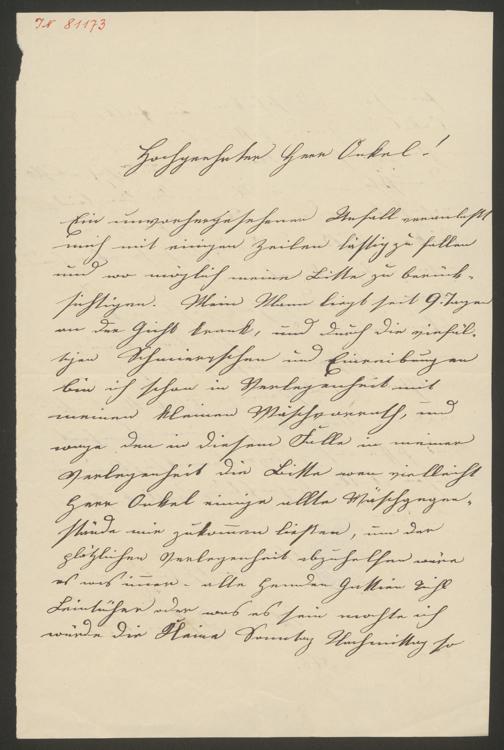 IN 81173
Hochgeehrter Herr Onkel!
Ein unvorhergesehener Unfall veranlaßt
mich mit einigen Zeilen lästig zu fallen
und wo möglich meine Bitte zu berück-
sichtigen. Mein Mann liegt seit 9 Tagen
an der Gicht krank, und durch die vielfäl-
tigen Schmierereien und Einreibungen
bin ich schon in Verlegenheit mit
meinen kleinen Wäschvorrath, und
wage den in diesem Falle in meiner
Verlegenheit die Bitte wen vielleicht
Herr Onkel einige allte Wäschgegen-
stände mir zukommen ließen, um der
plötzlichen Verlegenheit abzuhelfen wäre
es was immer - alte Hemden Gattien
Leintücher oder was es sein mochte ich
würde die Kleine Sonntag Nachmittag so